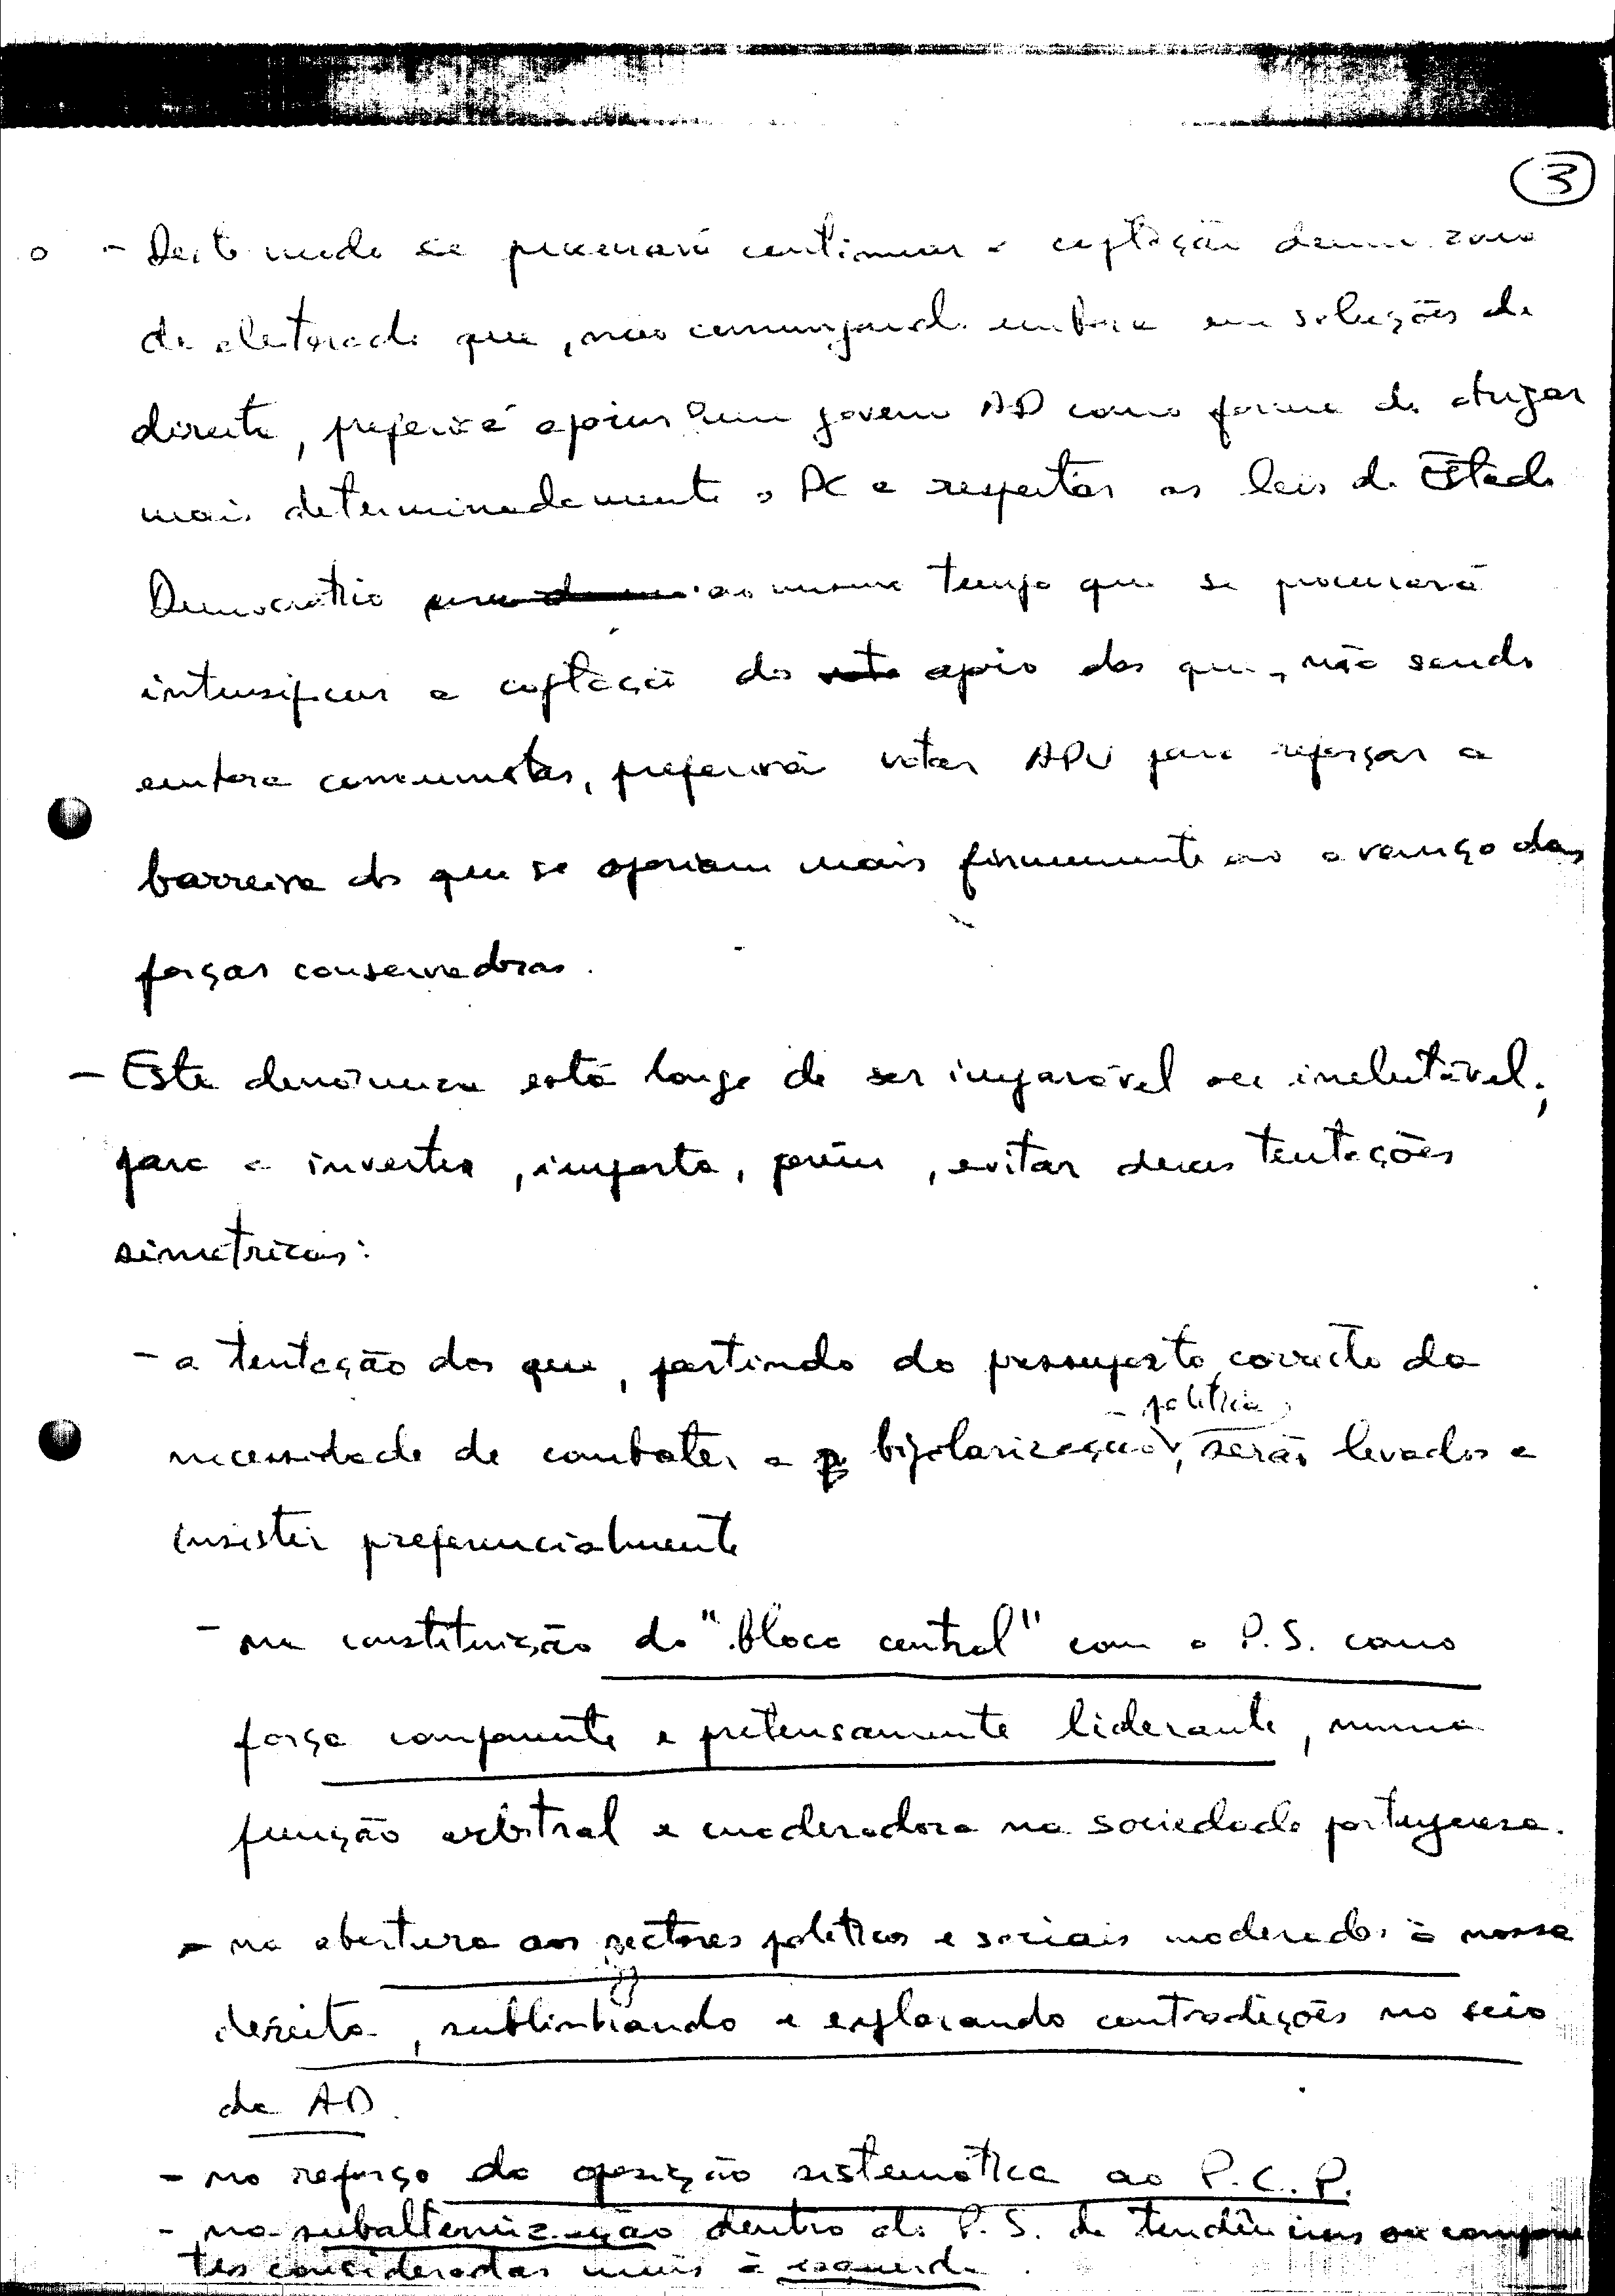 3
- Deste modo se procurará continuar a captação duma zona
do eleitorado que, não comungando embora em soluções de
direita, preferirá apoiar um governo AD como forma de obrigar
mais determinadamente o PC a respeitar as leis do Estado
Democrático ao mesmo tempo que se procurará
intensificar a captação do apoio dos que, não sendo
embora comunistas, preferirão votar APU para reforçar a
barreira dos que se oporiam mais firmemente ao avanço das
forças conservadoras.
- Esta dinâmica está longe de ser imparável ou inelutável;
para a inverter, importa, porém, evitar duas tentações
simétricas:
- a tentação dos que, partindo do pressuposto correcto da
política
necessidade de combater a bipolarização, serão levados a
insistir preferencialmente
- na constituição do "bloco central" com o P.S. como
força componente e pretensamente liderante, numa
função arbitral e moderadora na sociedade portuguesa.
- na abertura aos sectores políticos e sociais moderados à nossa
direita, sublinhando e explorando contradições no seio
da AD.
- no reforço da oposição sistemática ao P.C.P.
- na subalternização dentro do P.S. de tendências ou componen
tes consideradas mais à esquerda.